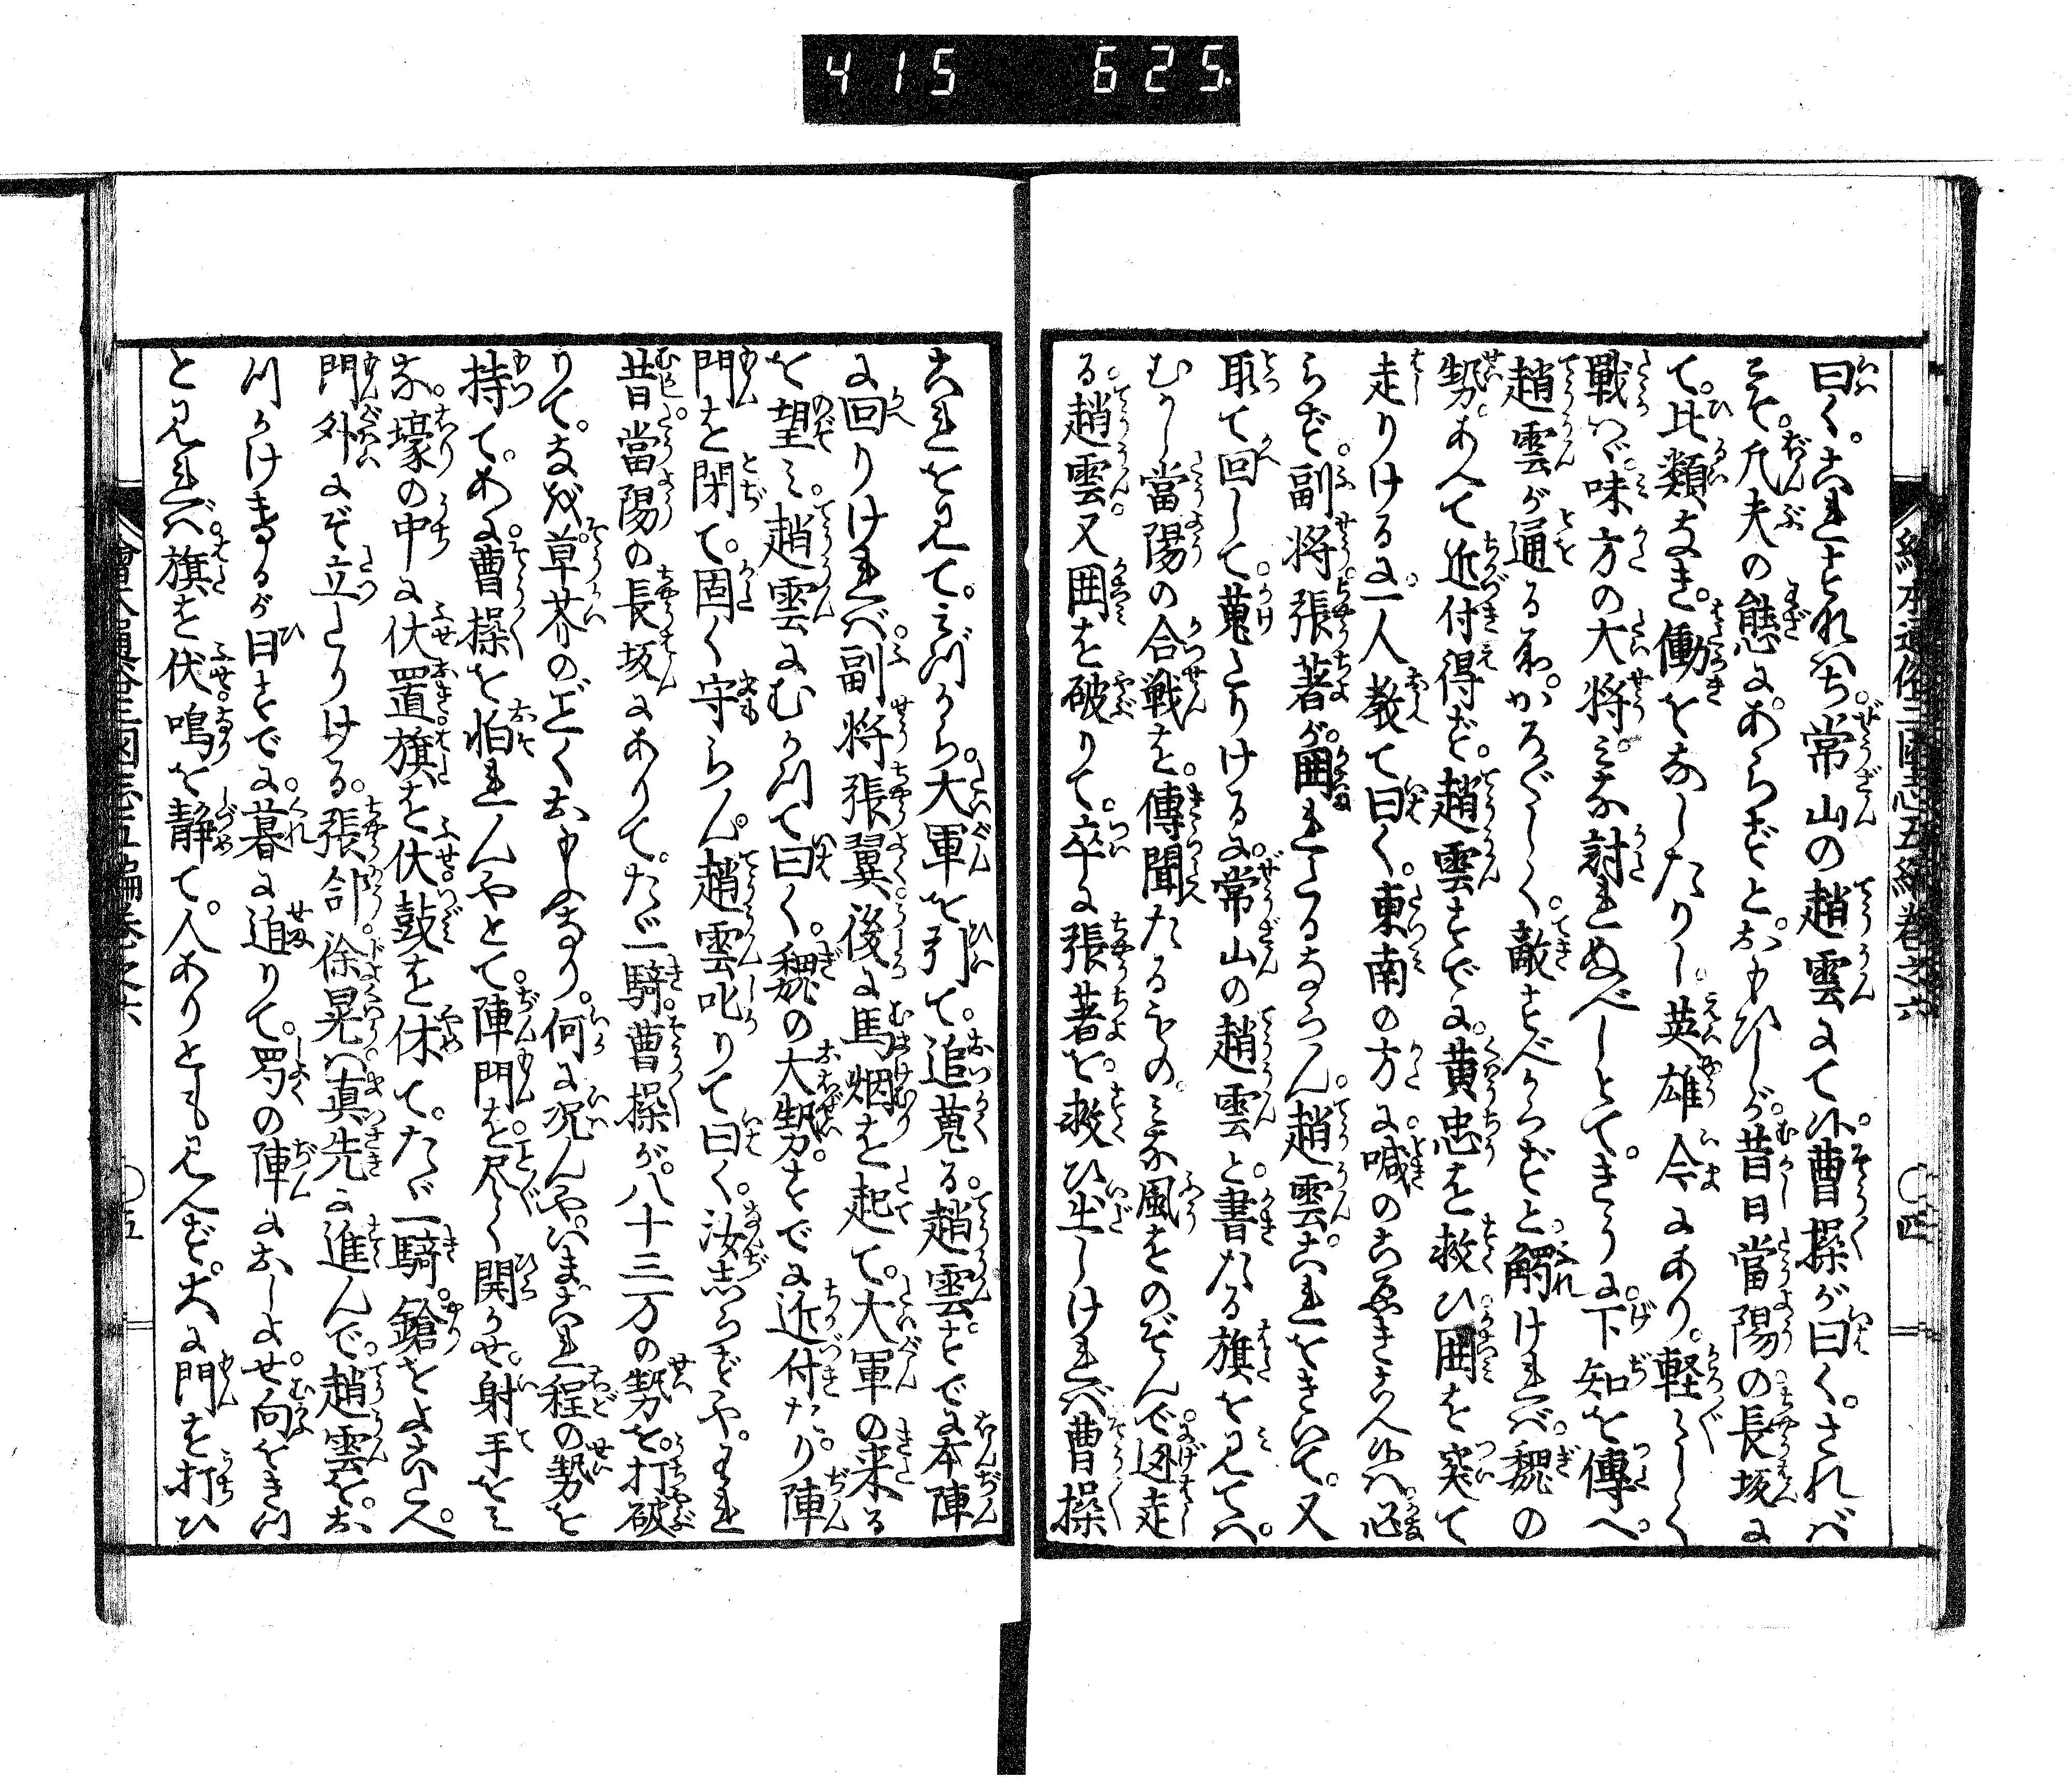 415 625.
繪本通俗三國志五編卷之六 〇四
曰く。これこそれハち。常山の趙雲にて候。曹操が曰く。されバ
こそ。凡夫の態にあらずと。おもひしが。昔日當陽の長坂に
て。比類なき。働をなしたりし。英雄今にあり。軽々しく
戰ハヾ。味方の大将ミな討れぬべしとて。きうに。下知を傳へ。
趙雲が通る所。かろ〴〵しく。敵すべからずと。觸けれバ。魏の
勢。あへて近付得ず。趙雲すでに。黄忠を救ひ。囲を突て
走りけるに。一人教て曰く。東南の方に。喊のこゑきこへ候ハ。必
らず。副将張著が。囲れたるならん。趙雲。これをきいて。又
取て回して。蒐たりけるに。常山の趙雲と。書たる旗を見てハ。
むかし當陽の合戦を。傳聞たるもの。ミな風をのぞんで。迯走
る。趙雲。又囲を破りて。卒に張著を。救ひ出しけれバ曹操
これを見て。ミづから。大軍を引て。追蒐る。趙雲。すでに本陣
に回りけれバ。副将張翼。後に馬烟を起て。大軍の来る
を望ミ。趙雲にむかつて曰く。魏の大勢。すでに近付たり。陣
門を閉て。固く守らん。趙雲叱りて曰く。汝志らずや。われ
昔。當陽の長坂にありて。たゞ一騎。曹操が。八十三万の勢を。打破
りて。なを草芥のごとくおもへるなり。何に况んや。いまこれ程の勢を
持て。あに。曹操を怕れんやとて。陣門を。尽く開かせ。射手をミ
な。壕の中に伏置。旗を伏。鼓を休て。たゞ一騎。鎗をよこたへ。
門外にぞ立たりける。張郃。徐晃ハ。真先に進んで。趙雲を。お
ひかけきたるが。日すでに。暮に迫りて。蜀の陣におしよせ。向をきつ
と見れバ。旗を伏。鳴を静て。人ありとも見へず。大に門を打ひ
繪本通俗三國志五編卷之六 〇五